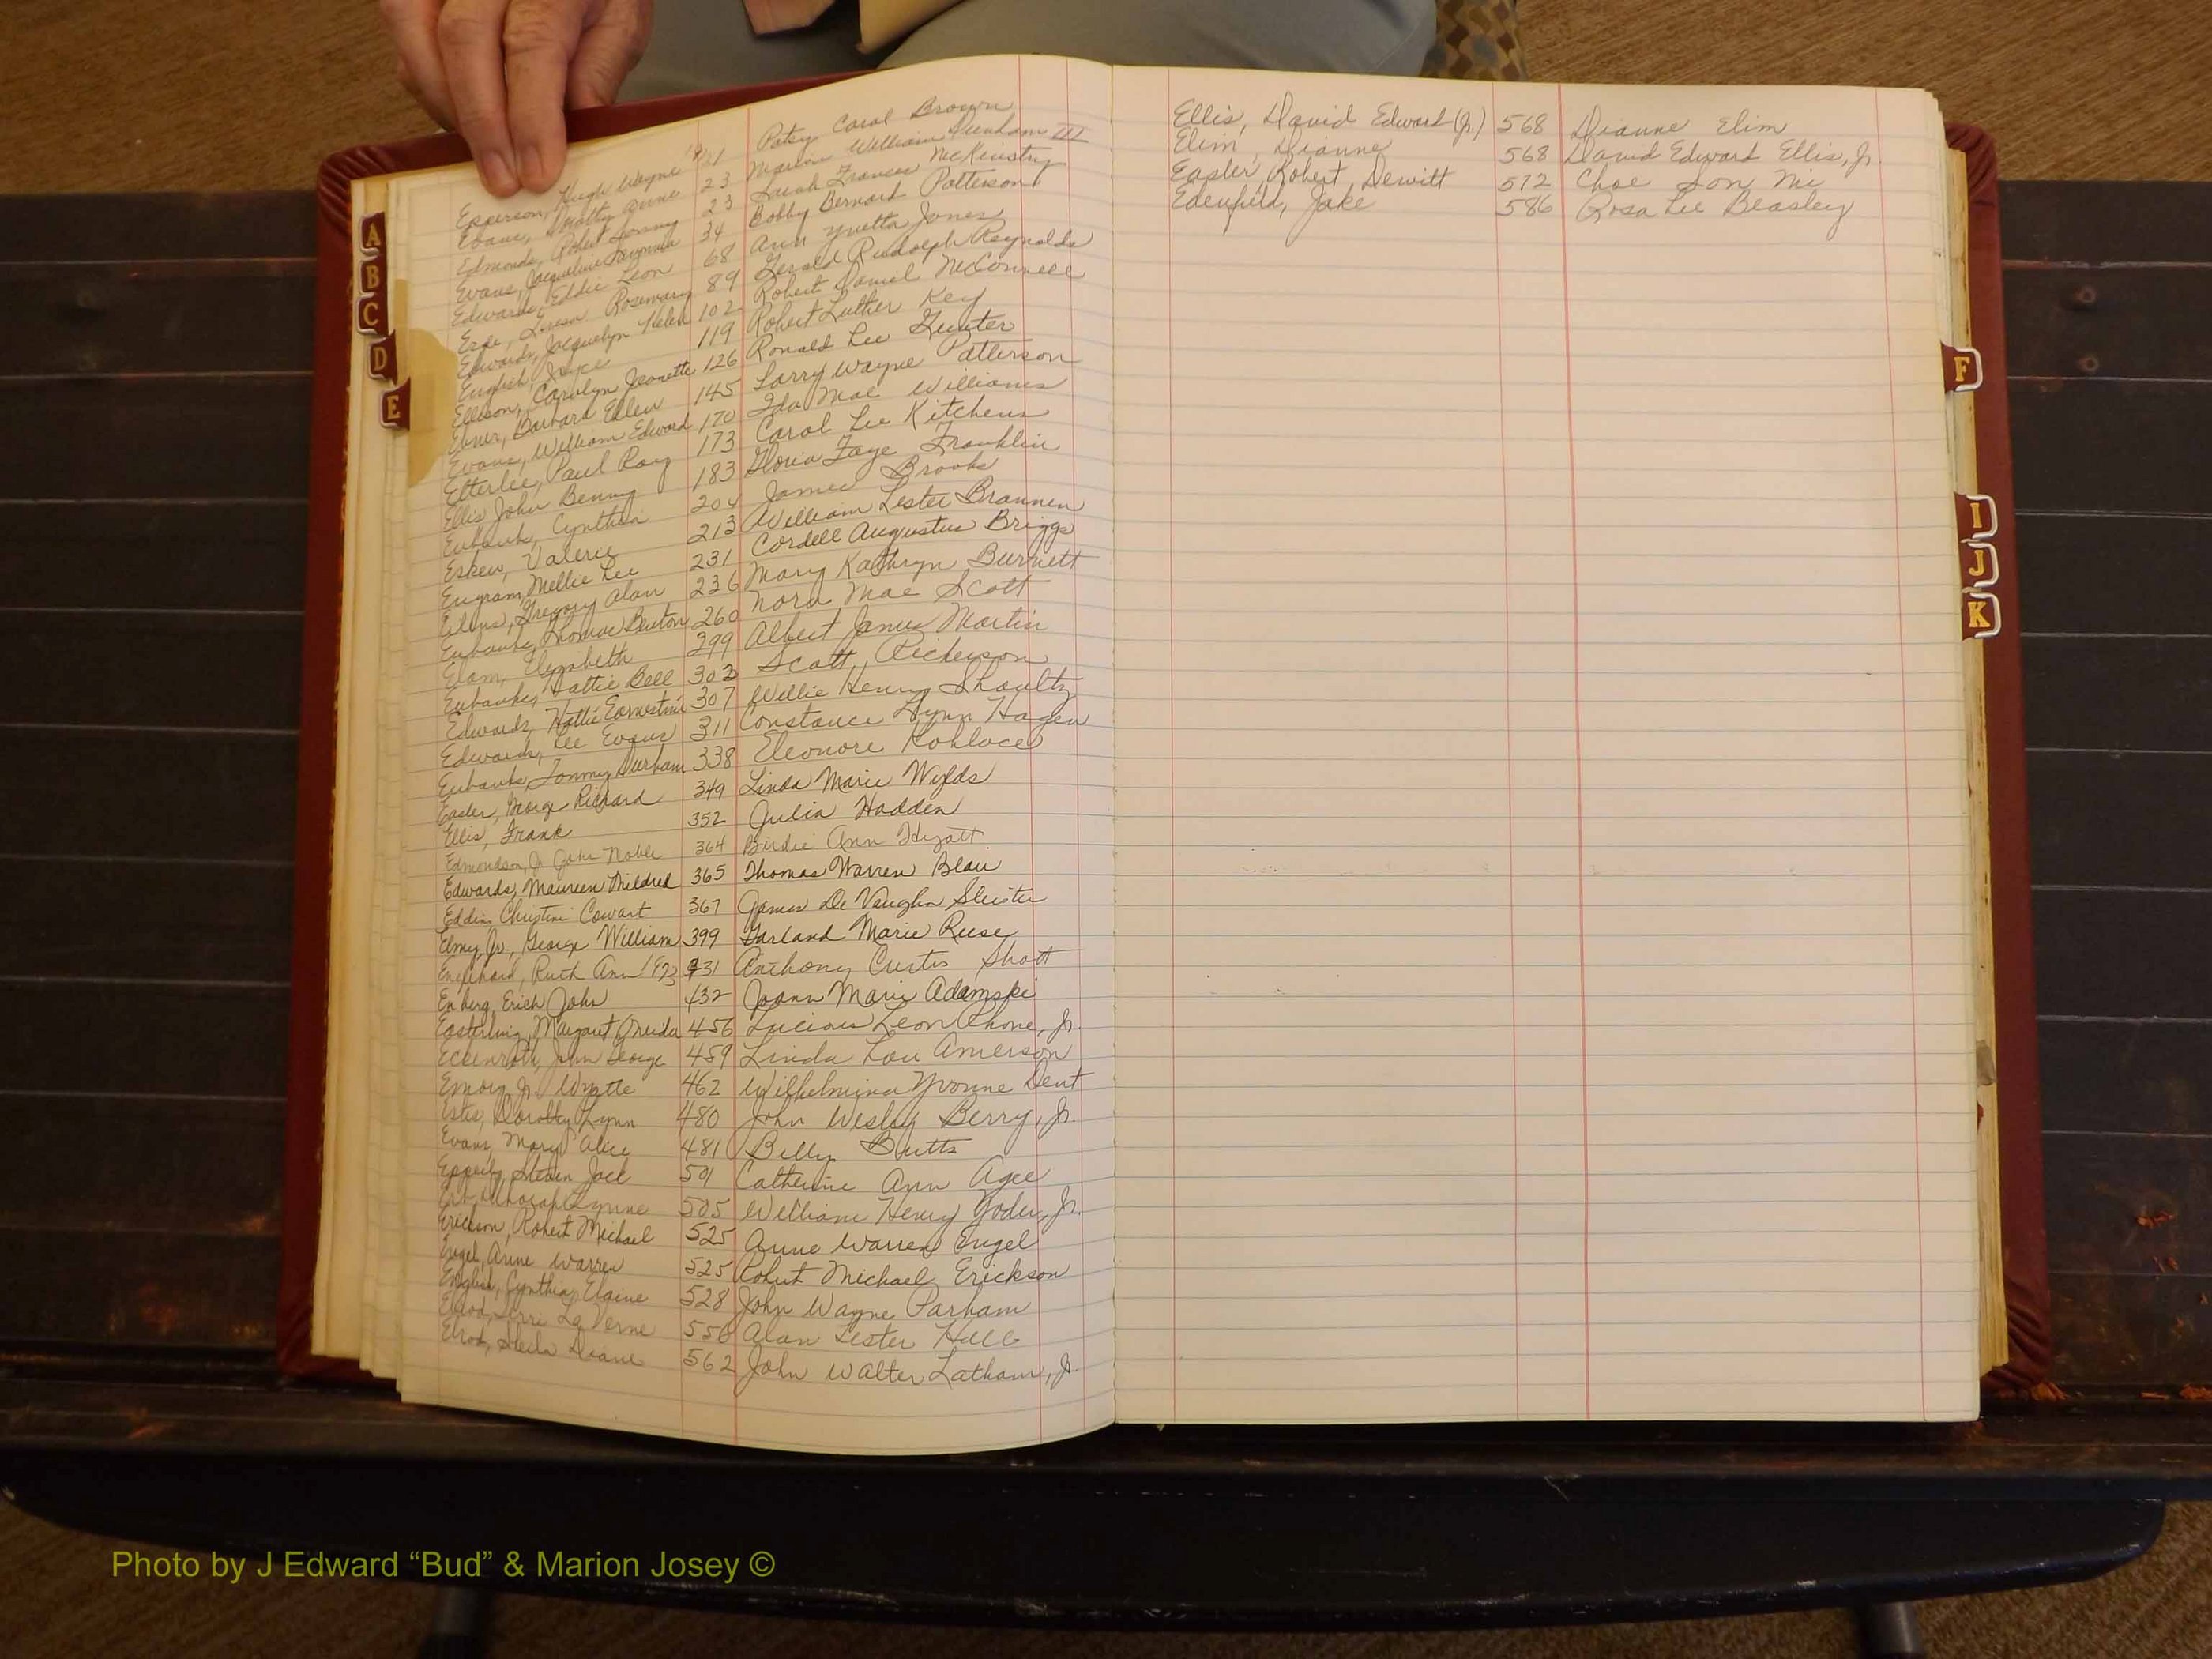 Epperson, Hugh Wayne 21 Patsy Carol Brown
Evans, Betty Anne 23 Marion William Dunham III
Edmonds, Robert Lonny 23 Sarah Frances McKinstry
Evans, Jacqueline 34 Bobby Bernard Patterson
Edwards, Eddie Leon 68 Ann Yvetta Jones
Rosemary 89 Gerald Rudolph Reynolds
Edwards, Jacquelyn Helen 102 Robert Daniel McConnell
English, Joyce 119 Robert Luther Key
Ellison, Carolyn Jeanette 126 Ronald Lee Gunter
Ebner, Barbara Ellen 145 Larry Wayne Patterson
Evans, William Edward 170 Ida Mae Williams
Etterlee, Paul Ray 173 Carol Lee Kitchens
Ellis John Benny 183 Gloria Faye Franklin
Eubanks, Cynthia 204 James Brooks
Eskew, Valerie 213 William Lester Brannen
Engram, Mellie Lee 231 Cordell Augustus Briggs
Gregory Alan 236 Mary Kathryn Burnett
Eubanks, Thomas Benton 260 Nora Mae Scott
Elam, Elizabeth 299 Albert James Martin
Eubanks, Hattie Bell 302 Scott, Rickerson
Edwards, Hattie Earnestine 307 Willie Henry Shoultz
Edwards, Lee Evans 311 Constance Lynn Hagen
Eubanks, Tommy Durham 338 Eleonore
Easler, George Richard 349 Linda Marie Wylds
Ellis, Frank 352 Julia Hadden
Edmondson, Jr John Noble 364 Birdie Ann Hyatt
Edwards, Maureen Mildred 365 Thomas Warren Blair
Eddins Christine Cowart 367 James De Vaughn
Elmy, Jr., George William 399 Garland Marie Reese
Engelhard, Ruth Ann 431 Anthony Curtis Shott
Enberg, Erich John 432 Joann Marie Adamski
Easterling, Margaret Oneida 456 Lucious Leon Phone, Jr.
Eckenroth, John George 459 Linda Lou Amerson
Emory, Jr. 462 Wilhelmina Yvonne Dent
Estes, Dorothy Lynn 480 John Wesley Berry, Jr.
Evans, Mary Alice 481 Billy Butts
Steven Jack 501 Catherine Ann Agee
Deborah Lynne 505 William Henry Yoder, Jr.
Erickson, Robert Michael 525 Anne Warren Engel
Engel, Anne Warren 525 Robert Michael Erickson
English, Cynthia Elaine 528 John Wayne Parham
Elrod, Terri LaVerne 556 Alan Lester Hall
Elrod, Sheila Diane 562 John Walter Latham, Jr.
Ellis, David Edward (Jr.) 568 Dianne Elim
Elim, Dianne 568 David Edward Ellis, Jr.
Easler, Robert Dewitt 572 Chae Son Mi
Edenfield, Jake 586 Rosa Lee Beasley
A
B
C
D
E
F
I
J
K
Photo by J Edward “Bud” & Marion Josey ©